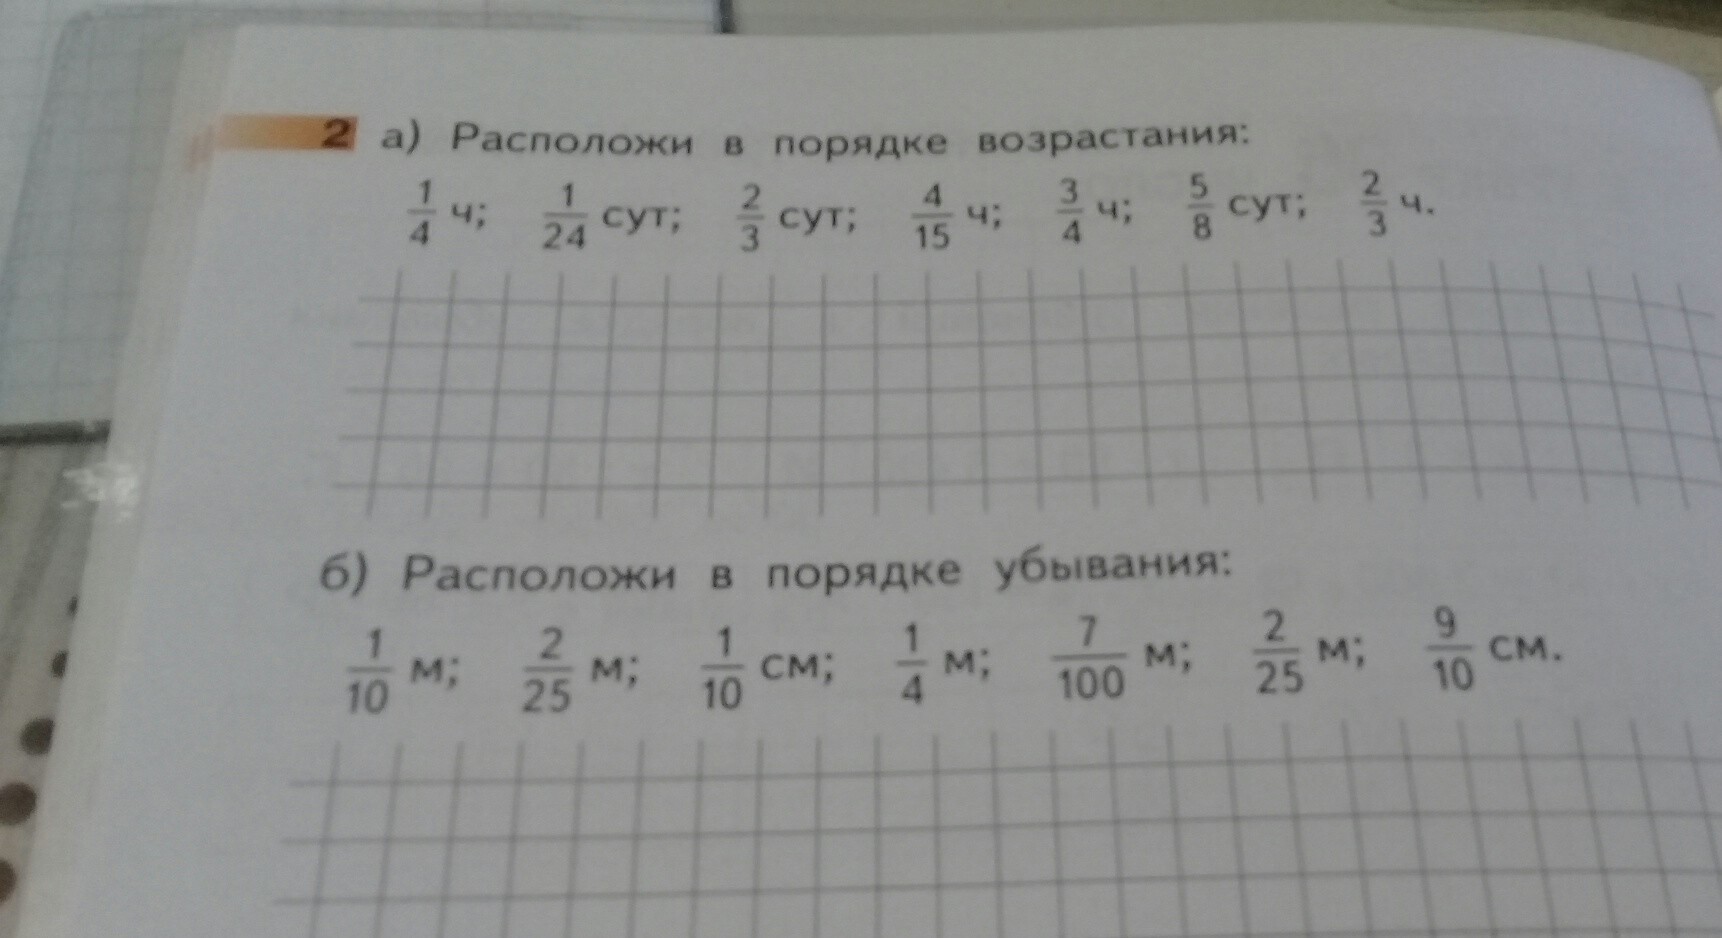 2 а) Расположи в порядке возрастания:
1/4 ч; 1/24 сут; 2/3 сут; 4/15 ч; 3/4 ч; 5/8 сут; 2/3 ч.
б) Расположи в порядке убывания:
1/10 м; 2/25 м; 1/10 см; 1/4 м; 7/100 м; 2/25 м; 9/10 см.